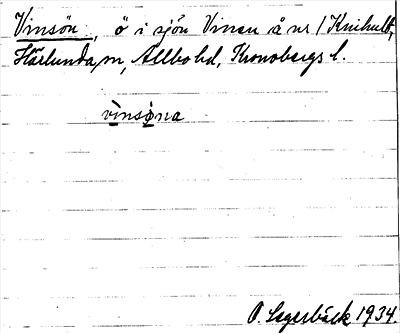 Vinsön, ö i sjön Vinen å nr 1 Knihult,
Härlunda sn, Allbo hd, Kronobergs l.
vinsöna
O. Lagerbäck 1934.